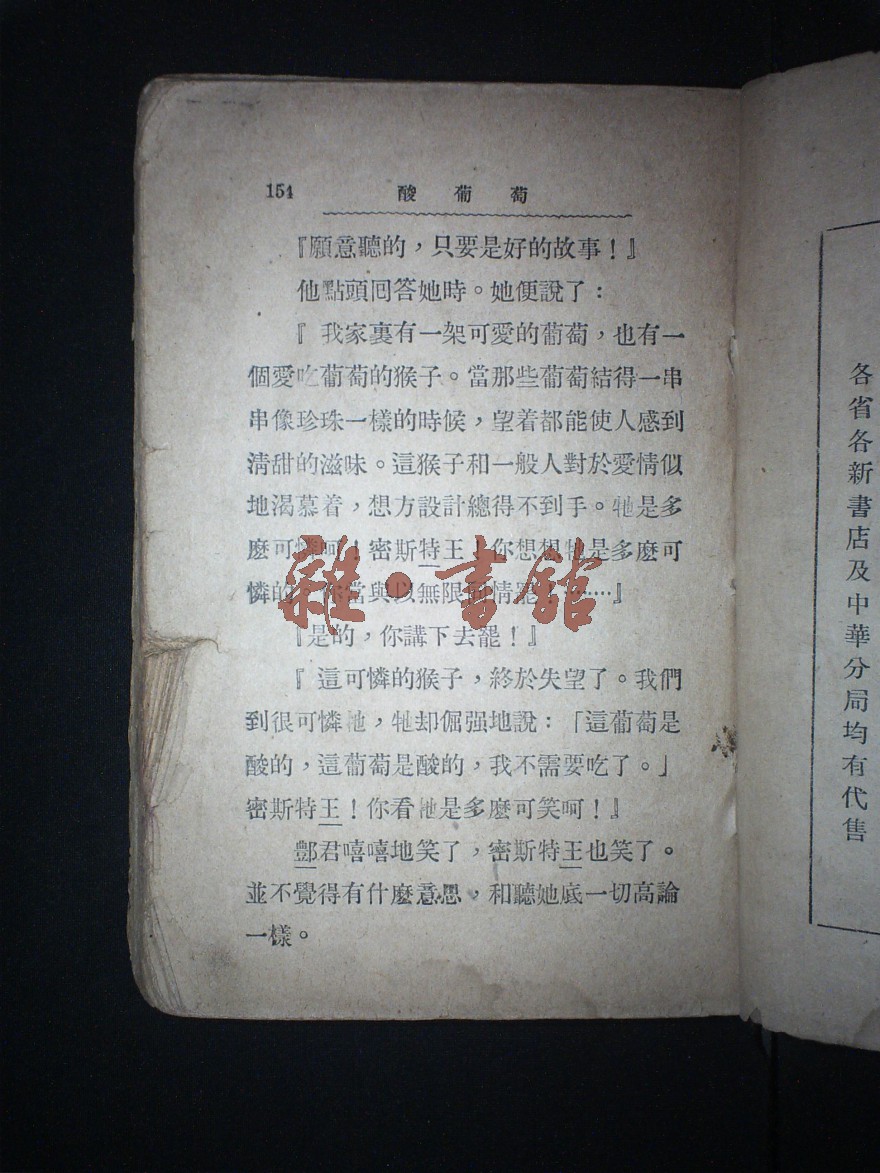 154 酸葡萄
『願意聽的，只要是好的故事！』
他點頭囘答她時。她便說了：
『我家裏有一架可愛的葡萄，也有一
個愛吃葡萄的猴子。當那些葡萄結得一串
串像珍珠一樣的時候，望着都能使人感到
清甜的滋味。這猴子和一般人對於愛情似
地渴慕着，想方設計總得不到手。牠是多
麽可憐呵！密斯特王！你想想牠是多麽可
憐的。你當與以無限同情罷！………』
『是的，你講下去罷！』
『這可憐的猴子，終於失望了。我們
到很可憐牠，牠却倔强地說：「這葡萄是
酸的，這葡萄是酸的，我不需要吃了。」
密斯特王！你看牠是多麽可笑呵！』
酆君嘻嘻地笑了，密斯特王也笑了。
並不覺得有什麽意思，和聽她底一切高論
一樣。
各省各新書店及中華分局均有代售
雜·書館